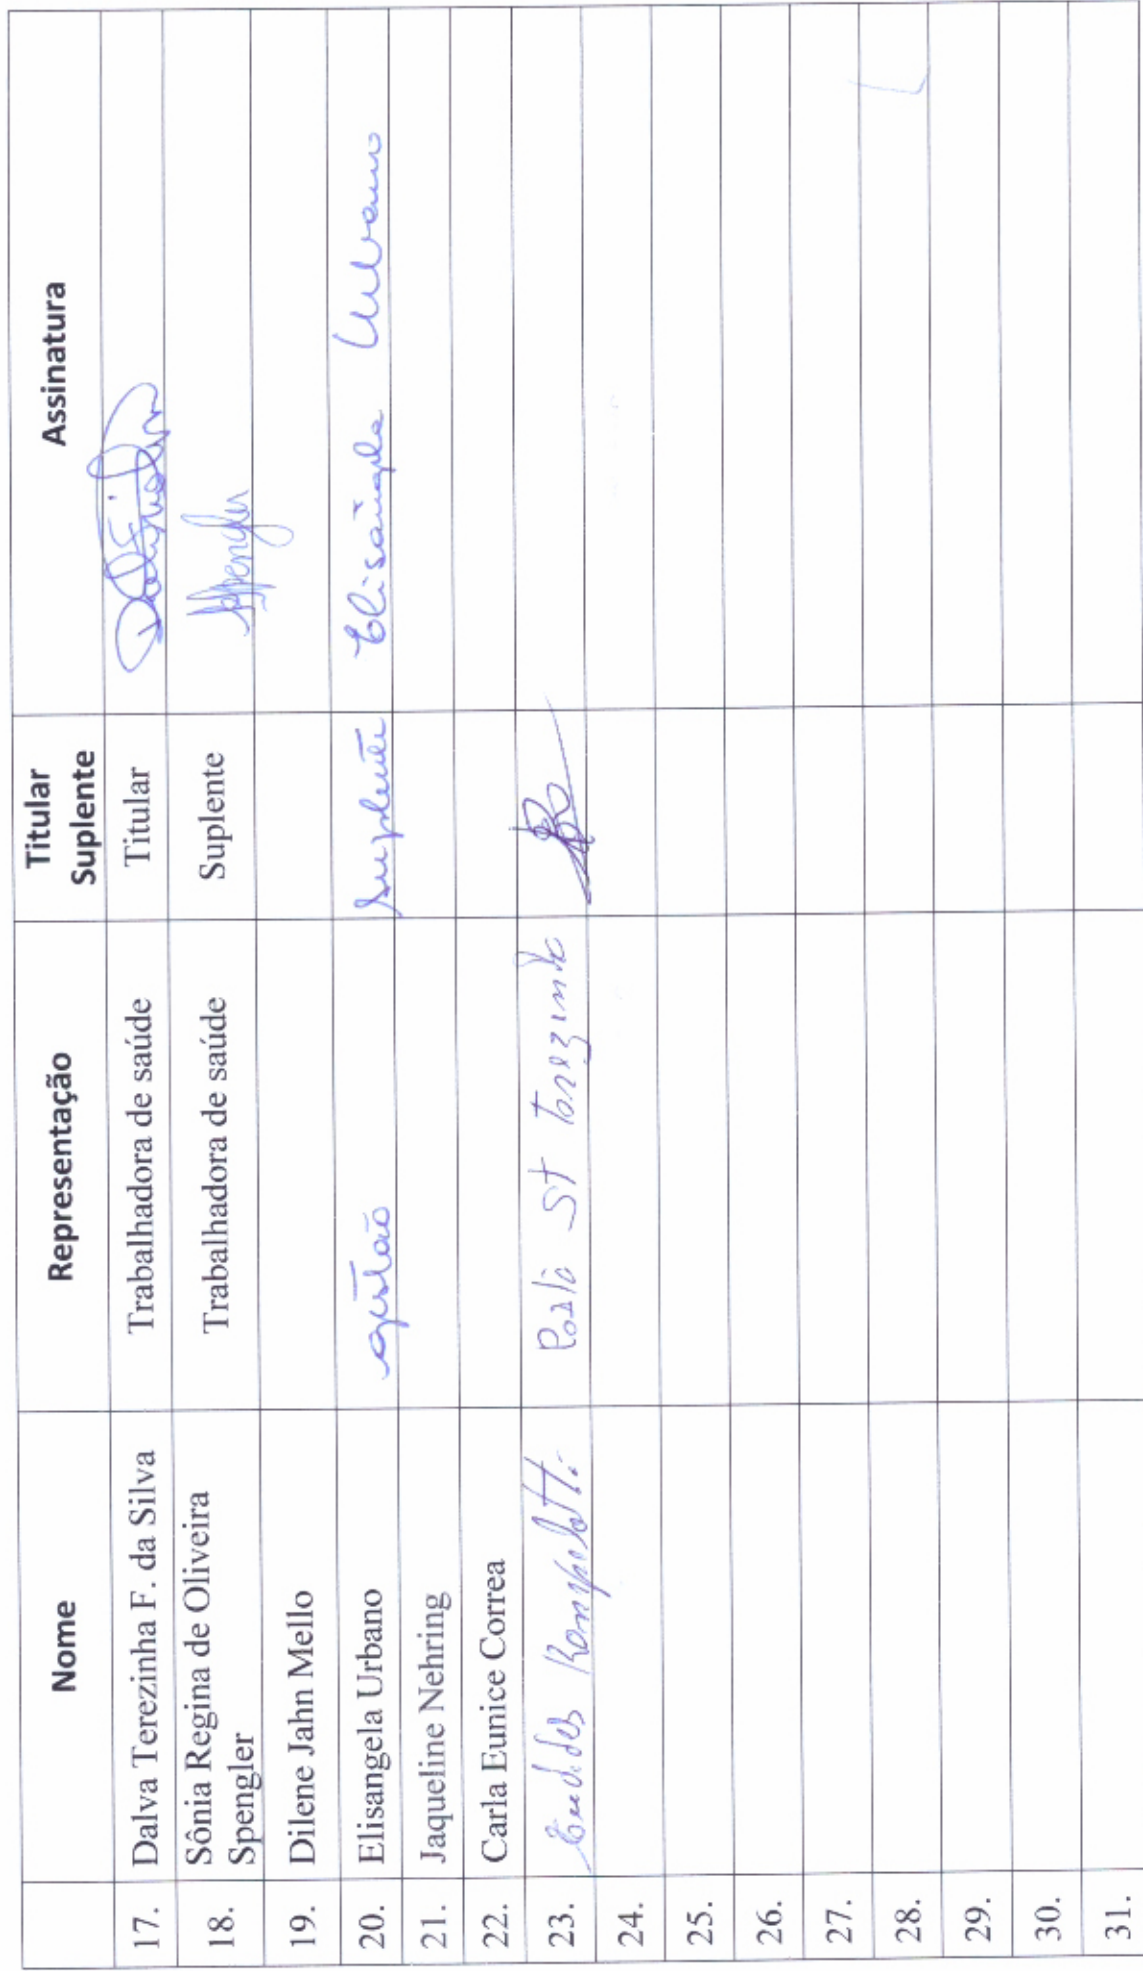 Nome Representação Titular Suplente Assinatura
17. Dalva Terezinha F. da Silva Trabalhadora de saúde Titular
18. Sônia Regina de Oliveira Spengler Trabalhadora de saúde Suplente Spengler
19. Dilene Jahn Mello
20. Elisangela Urbano gestão suplente Elisângela Urbano
21. Jaqueline Nehring
22. Carla Eunice Correa
23. St
24.
25.
26.
27.
28.
29.
30.
31.